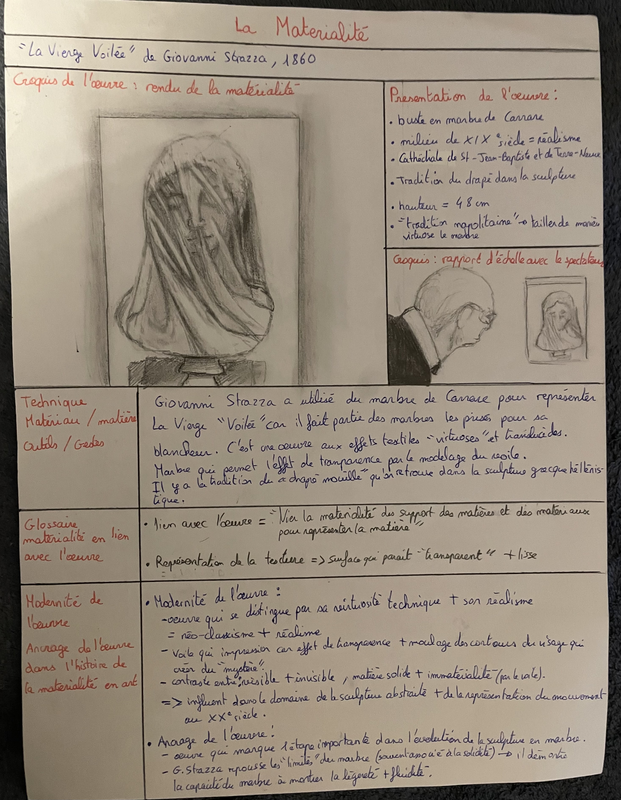 La Materialité
"La Vierge Voilée" de Giovanni Strazza, 1860
Croquis de l'œuvre : rendu de la matérialité
Présentation de l'œuvre :
• buste en marbre de Carrare
• milieu de XIXe siècle = réalisme
• Cathédrale de St-Jean-Baptiste et de Terre-Neuve
• Tradition du drapé dans la sculpture
• hauteur = 48 cm
• "tradition napolitaine" → tailler de manière
virtuose le marbre
Croquis : rapport d'échelle avec le spectateur
Technique
Matériau / matière
Outils / Gestes
Giovanni Strazza a utilisé du marbre de Carrare pour représenter
La Vierge "Voilée" car il fait partie des marbres les prisés pour sa
blancheur. C'est une œuvre aux effets textiles "virtuoses" et translucides.
Marbre qui permet l'effet de transparence par le modelage du voile.
Il y a la tradition du "drapé mouillé" qu'on retrouve dans la sculpture grecque héllénis-
tique.
Glossaire
matérialité en lien
avec l'œuvre
• lien avec l'œuvre = "Nier la matérialité des support des matières et des matériaux
pour représenter la matière"
• Représentation de la texture => surface qui parait "transparent" + lisse
Modernité de
l'œuvre
Ancrage de l'œuvre
dans l'histoire de
la matérialité en art
• Modernité de l'œuvre :
- œuvre qui se distingue par sa virtuosité technique + son réalisme
= néo-classisme + réalisme
- Voile qui impression car effet de transparence + moulage des contours du visage qui
créer du "mystère"
- contraste entre visible + invisible, matière solide + immatérialité (par le voile).
=> influent dans le domaine de la sculpture abstraite + de la représentation du mouvement
au XXe siècle.
• Ancrage de l'œuvre :
- œuvre qui marque 1 étape importante dans l'évolution de la sculpture en marbre.
- G. Strazza repousse les "limites" du marbre (souvent à la solidité) → il démontre
la capacité du marbre à montrer la légereté + fluidité.